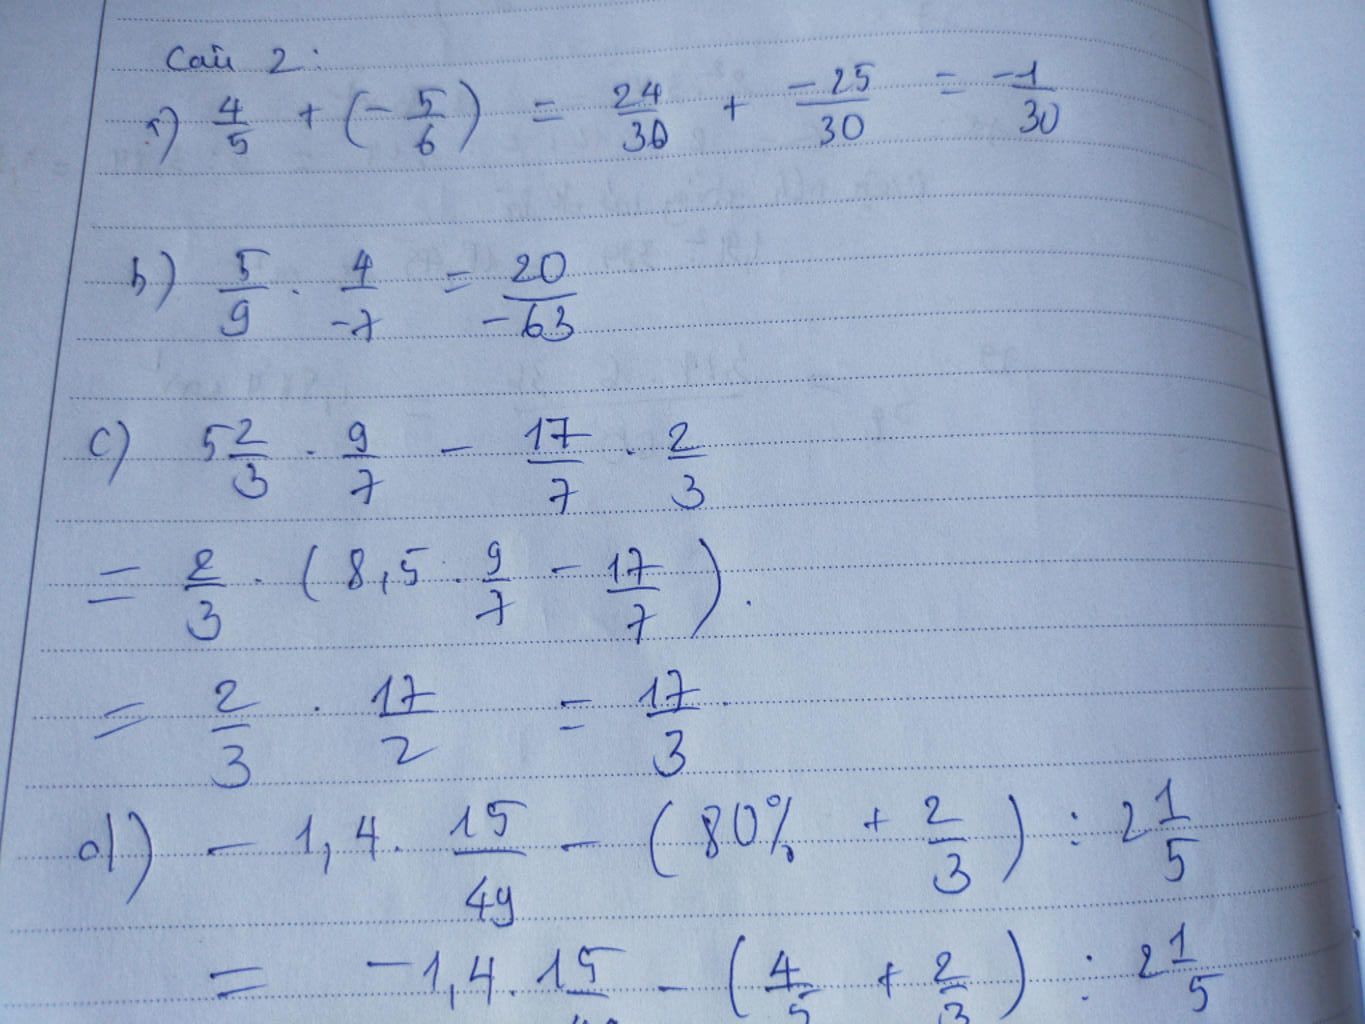 Câu 2:
a) 4/5 + (-5/6) = 24/30 + -25/30 = -1/30
b) 5/9 . 4/-7 = 20/-63
c) 5 2/3 . 9/7 - 17/7 . 2/3
= 2/3 . (8,5 . 9/7 - 17/7).
= 2/3 . 17/2 = 17/3
d) - 1,4 . 15/49 - (80% + 2/3) : 2 1/5
= -1,4 . 15/49 - (4/5 + 2/3) : 2 1/5